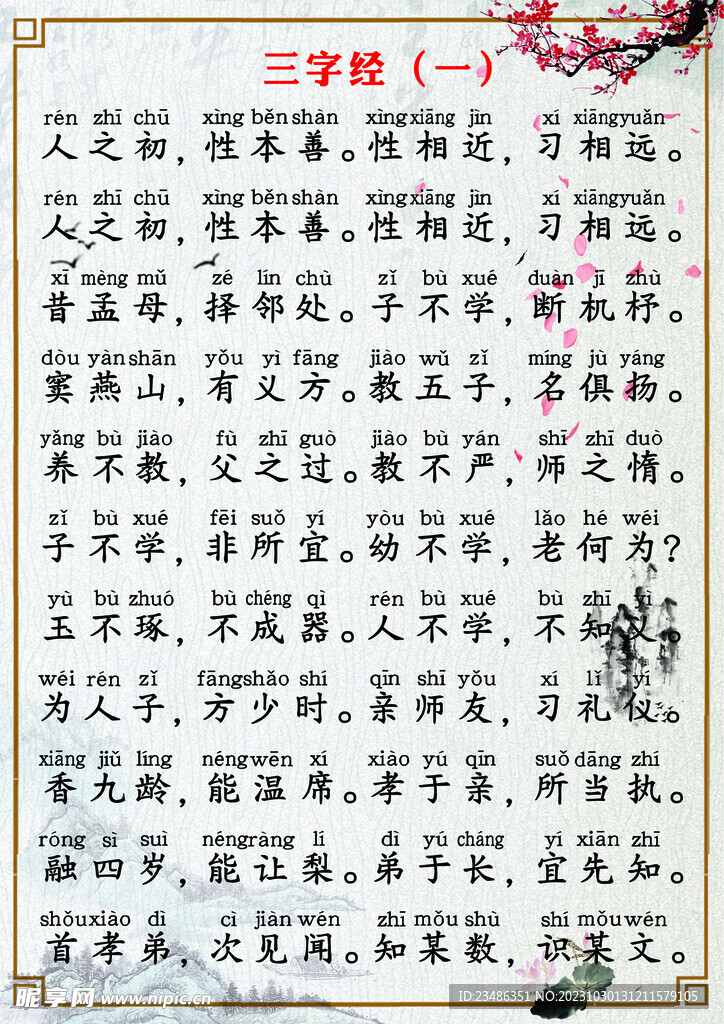 三字经（一）
rén zhī chū xìng běn shàn xìng xiāng jìn xí xiāng yuǎn
人之初，性本善。性相近，习相远。
rén zhī chū xìng běn shàn xìng xiāng jìn xí xiāng yuǎn
人之初，性本善。性相近，习相远。
xī mèng mǔ zé lín chù zǐ bù xué duàn jī zhù
昔孟母，择邻处。子不学，断机杼。
dòu yàn shān yǒu yì fāng jiào wǔ zǐ míng jù yáng
窦燕山，有义方。教五子，名俱扬。
yǎng bù jiào fù zhī guò jiào bù yán shī zhī duò
养不教，父之过。教不严，师之惰。
zǐ bù xué fēi suǒ yí yòu bù xué lǎo hé wéi
子不学，非所宜。幼不学，老何为？
yù bù zhuó bù chéng qì rén bù xué bù zhī yì
玉不琢，不成器。人不学，不知义。
wéi rén zǐ fāng shǎo shí qīn shī yǒu xí lǐ yí
为人子，方少时。亲师友，习礼仪。
xiāng jiǔ líng néng wēn xí xiào yú qīn suǒ dāng zhí
香九龄，能温席。孝于亲，所当执。
róng sì suì néng ràng lí dì yú cháng yí xiān zhī
融四岁，能让梨。弟于长，宜先知。
shǒu xiào dì cì jiàn wén zhī mǒu shù shí mǒu wén
首孝弟，次见闻。知某数，识某文。
昵享网 www.nipic.cn
ID:23486351 NO:20231030131211579105